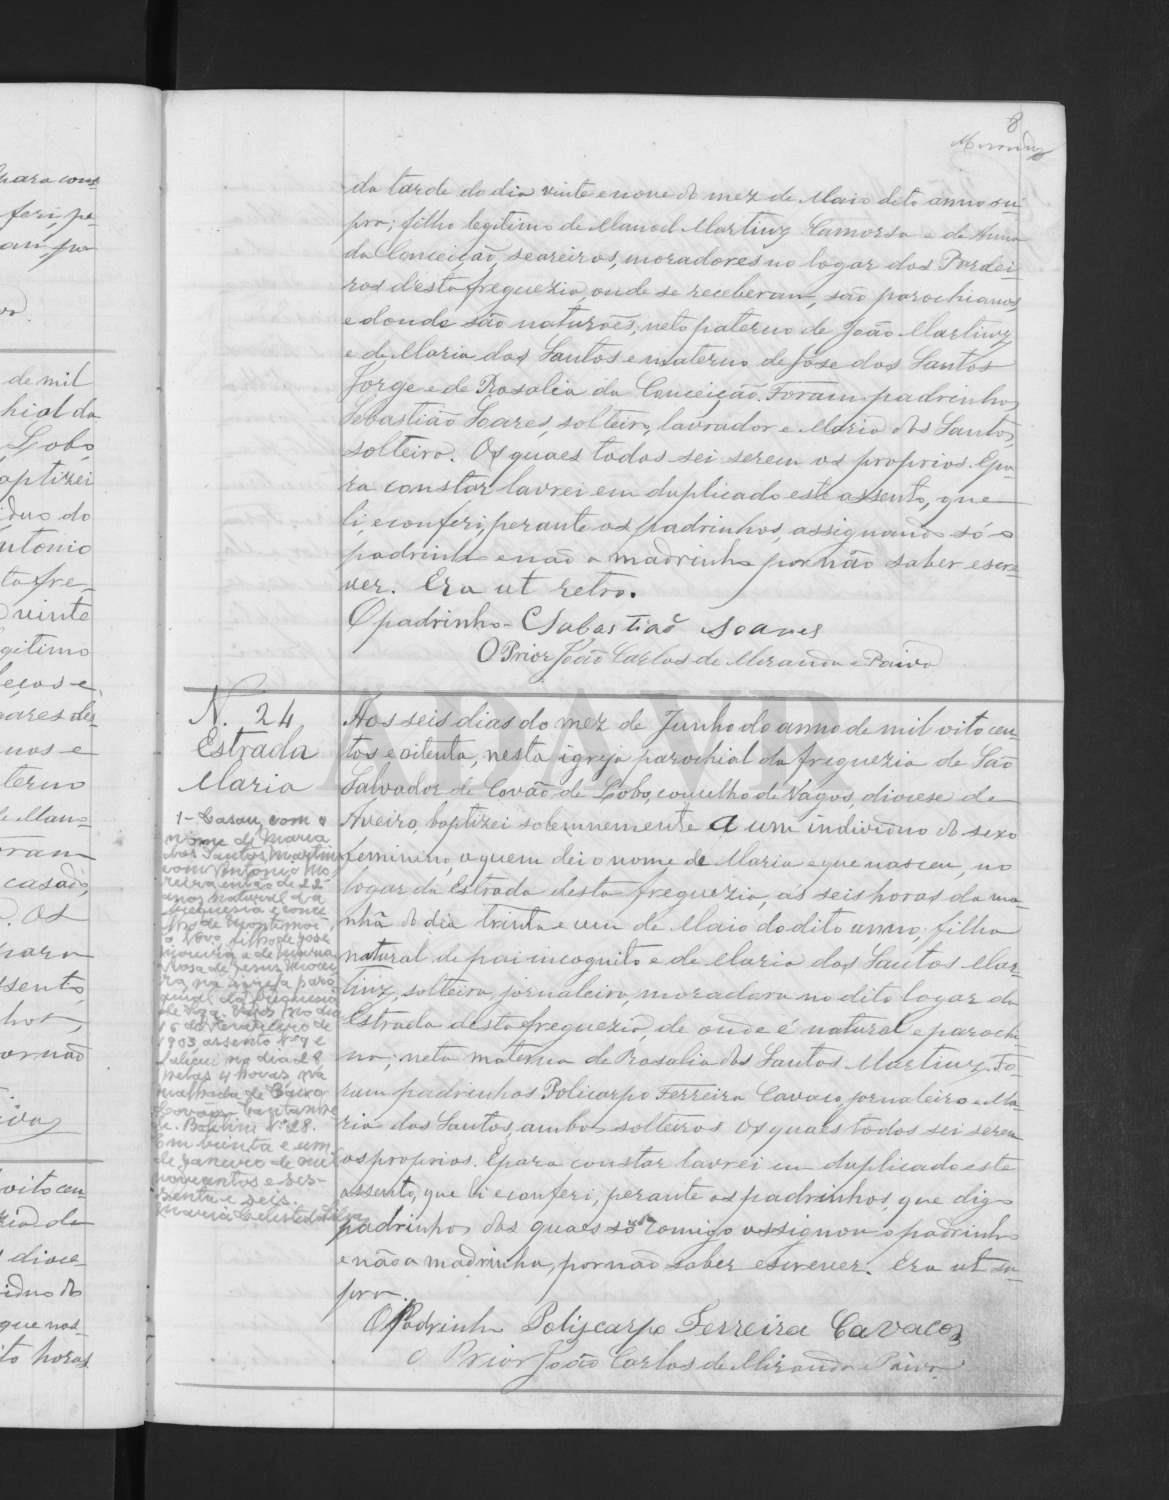 8
da tarde do dia vinte e nove do mez de Maio dito anno su-
pra; filho legitimo de Manoel Martinz Camorsa e de Anna
da Conceição, seareiros, moradores no logar dos Pardei-
ros d'esta freguezia, onde se receberam, são parochianos,
e donde são naturães; neto paterno de João Martinz
e de Maria dos Santos e materno de José dos Santos
Jorge e de Rosalia da Conceição. Foram padrinhos
Sebastião Soares, solteiro, lavrador e Maria dos Santos,
solteira. Os quaes todos sei serem os proprios. E pa-
ra constar lavrei em duplicado este assento, que
li, e conferi, perante os padrinhos, assignando só o
padrinho e não a madrinha por não saber escre-
ver. Era ut retro.
O padrinho - Sabastiaõ Soares
O Prior João Carlos de Miranda e Paiva
N. 24
Estrada
Maria
Aos seis dias do mez de Junho do anno de mil oito cen-
tos e oitenta, nesta igreja parochial da freguezia de São
Salvador de Covão de Lobo, concelho de Vagos, diocese de
Aveiro, baptizei solemnemente a um individuo do sexo
feminino, a quem dei o nome de Maria e que nasceu, no
logar da Estrada desta freguezia, ás seis horas da ma-
nhã do dia trinta e um de Maio do dito anno, filha
natural de pai incognito e de Maria dos Santos Mar-
tinz, solteira, jornaleira, moradora no dito logar da
Estrada desta freguezia, de onde é natural e parochi-
na; neta materna de Rosalia dos Santos Martinz. Fo-
ram padrinhos Policarpo Ferreira Cavaco, jornaleiro e Ma-
ria dos Santos, ambos solteiros os quaes todos sei serem
os proprios. E para constar lavrei em duplicado este
assento, que li e conferi, perante os padrinhos, que digo
padrinhos dos quaes só comigo assignou o padrinho
e não a madrinha, por não saber escrever. Era ut su-
pra.
O Padrinho Polycarpo Ferreira Cavaco
O Prior João Carlos de Miranda e Paiva.
1- Casou com o
nome de Maria
dos Santos Martins
com Antonio Mo
reira então de 22
anos natural da
freguesia e conce
lho de Montemor
o Novo filho de José
Moreira e de Maria
Rosa de Jesus Morei
ra, na igreja paro
quial da freguesia
de no dia
16 de Fevereiro de
1903 assento Nº 4 e
faleceu no dia 28
pelas 4 horas na
de
Covões, Cantanhe
de. Boletim Nº 28.
Em trinta e um
de Janeiro de mil
novecentos e ses-
senta e seis.
Maria Celeste da Silva
ADAVR